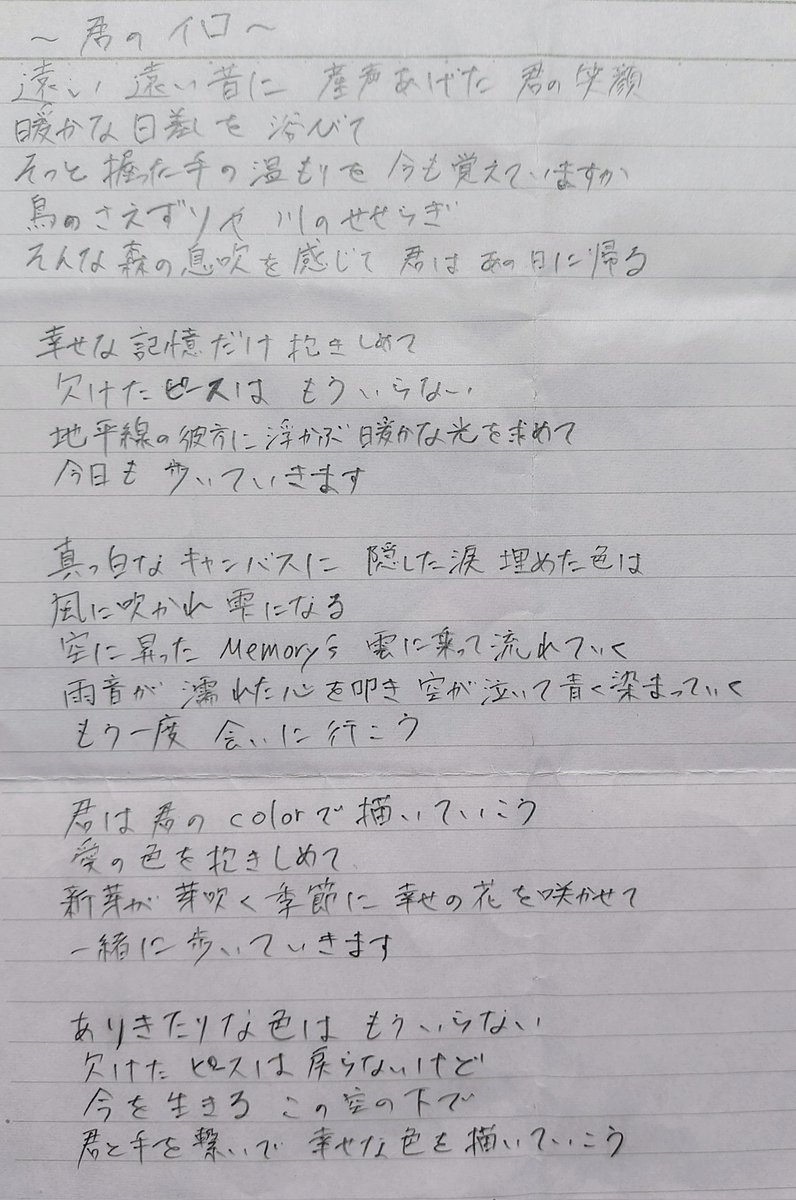 ～君のイロ～
遠い 遠い昔に 産声あげた 君の笑顔
暖かな日差しを 浴びて
そっと 握った手の温もりを 今も覚えていますか
鳥のさえずりや 川のせせらぎ
そんな森の息吹を感じて 君は あの日に帰る
幸せな記憶だけ 抱きしめて
欠けたピースは もういらない
地平線の彼方に浮かぶ 暖かな光を求めて
今日も 歩いていきます
真っ白な キャンバスに 隠した涙 埋めた色は
風に吹かれ 雫になる
空に昇った Memory's 雲に乗って流れていく
雨音が 濡れた心を叩き 空が泣いて青く染まっていく
もう一度 会いに行こう
君は君の colorで描いていこう
愛の色を抱きしめて
新芽が芽吹く季節に 幸せの花を咲かせて
一緒に歩いていきます
ありきたりな色は もういらない
欠けたピースは戻らないけど
今を生きる この空の下で
君と手を繋いで 幸せな色を描いていこう